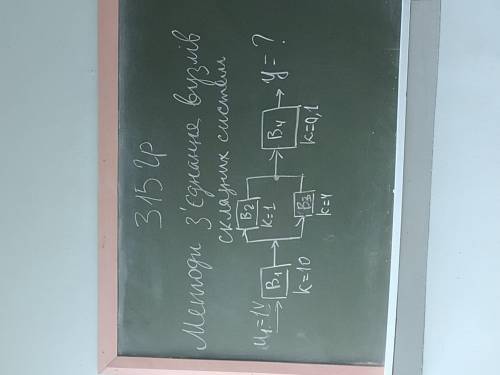 315 гр
Методи з'єднання вузлів
складних систем
B2
k=1
U₁=1V
B1
k=10
B3
k=4
B4
k=0,1
y=?